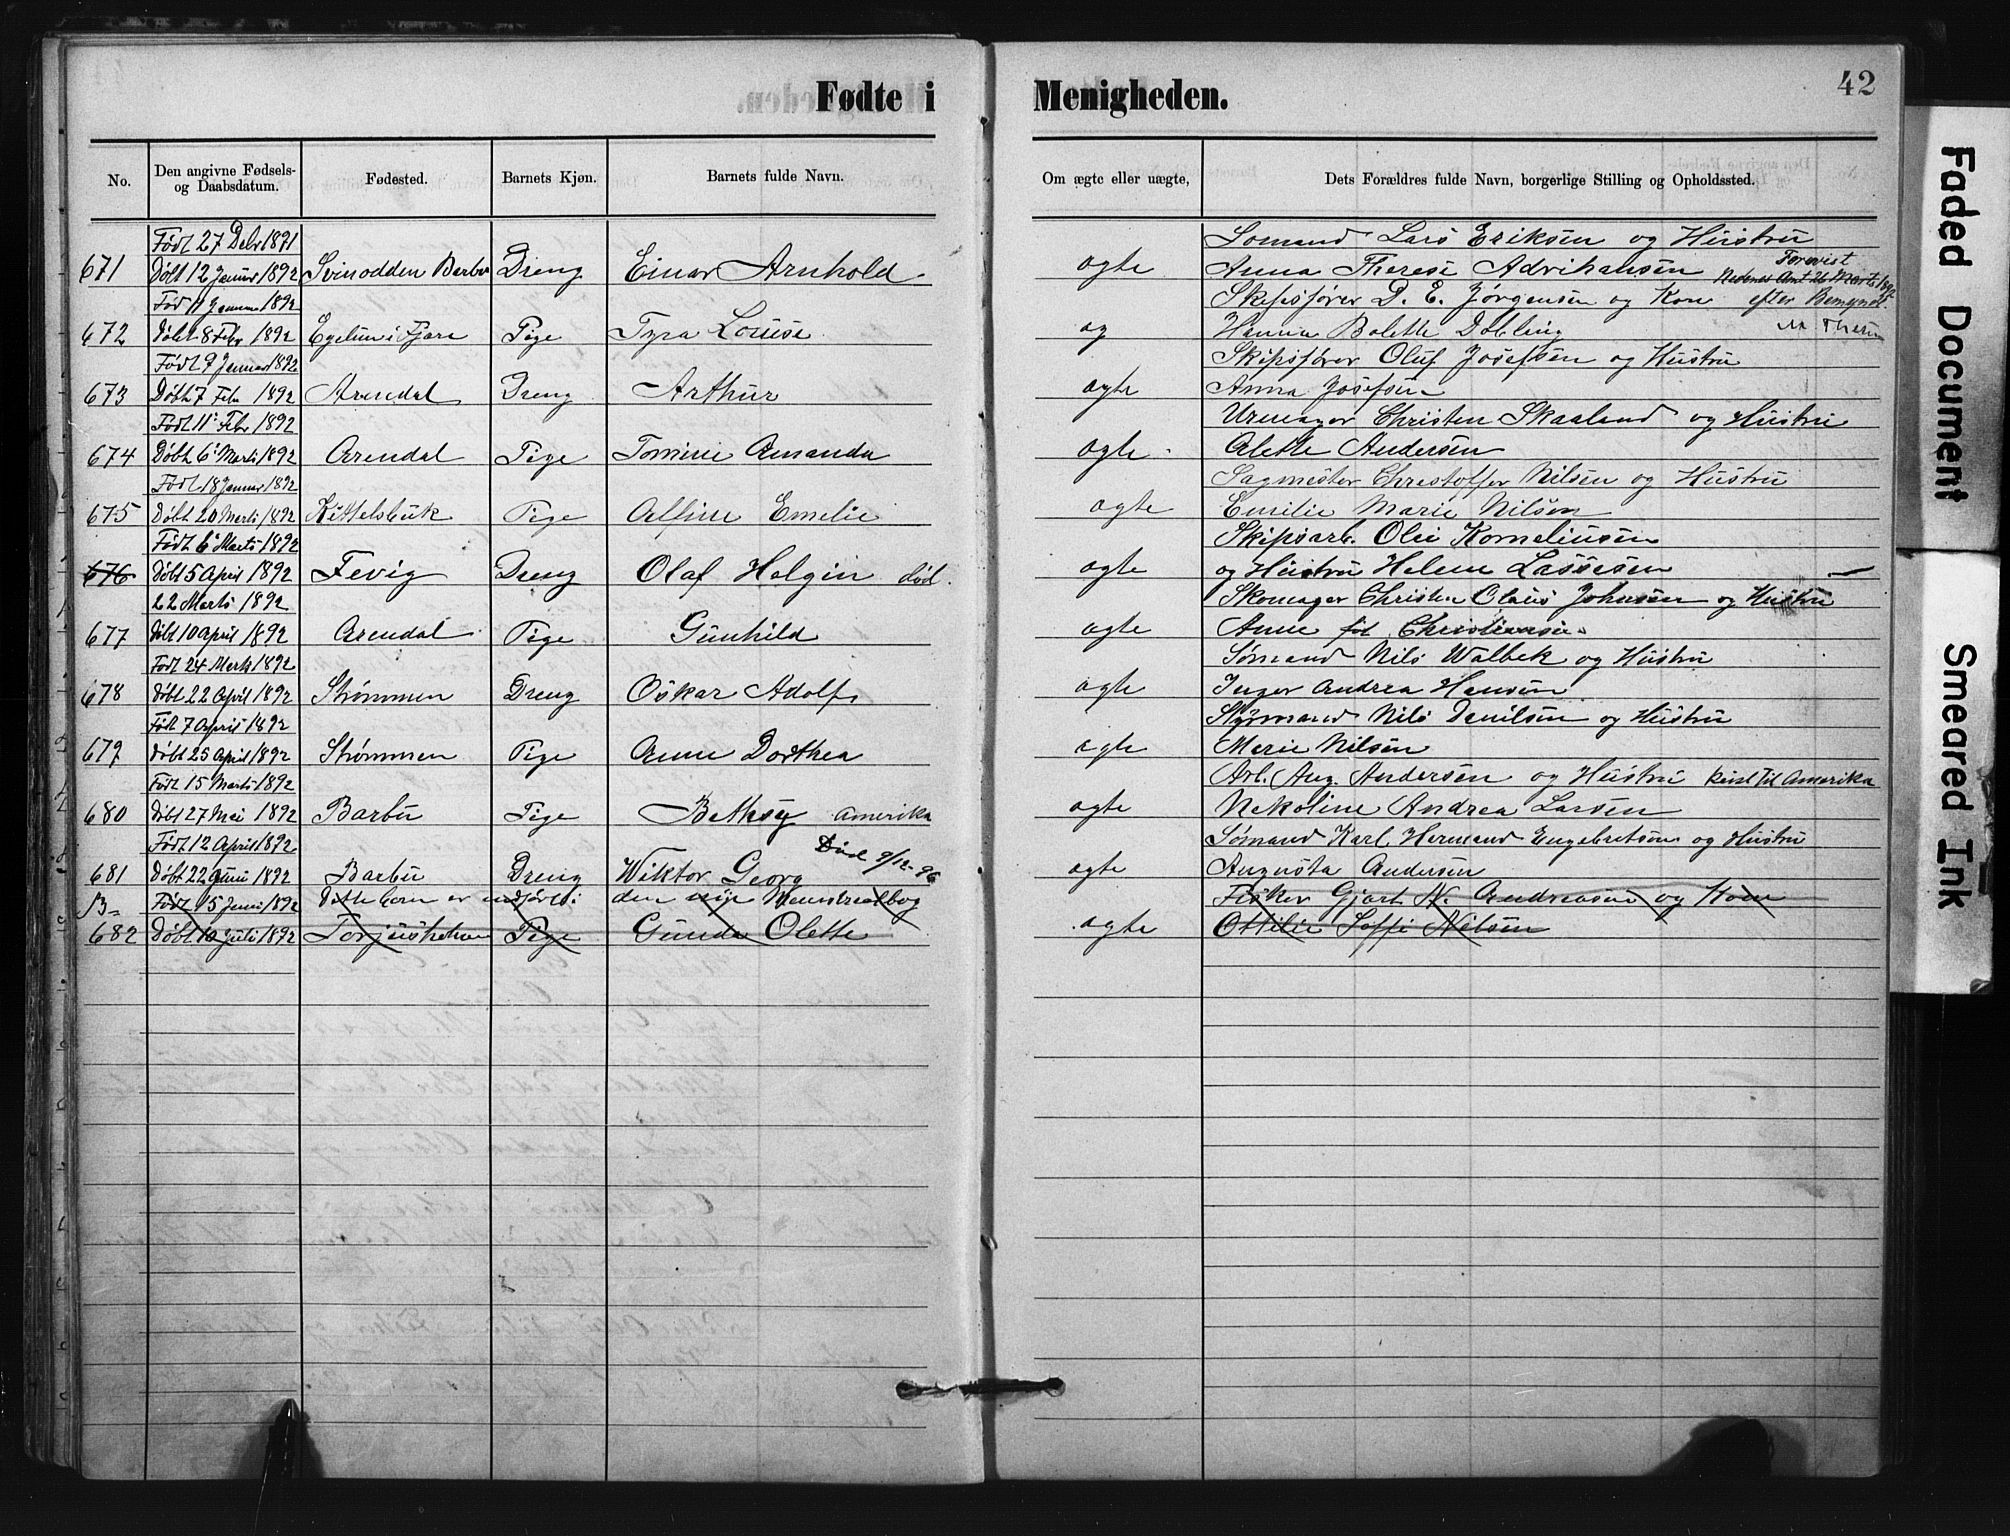 Fødte i Menigheden.
42
No.
Den angivne Fødsels- og Daabsdatum.
Fødested.
Barnets Kjøn.
Barnets fulde Navn.
Om ægte eller uægte,
Dets Forældres fulde Navn, borgerlige Stilling og Opholdssted.
Født 27 Debr 1891 Sømand Lars Eriksen og Hüstru
671 Døbt 12 Januar 1892 Svinodden Barbo Dreng Einar Arnhold ægte Anna Therese Adrihansen Forevist
Nedenes Amt 26 Marts 1892
Fød 11 Januar 1892 Skipsfører D. E. Jørgensen og Kone efter Bemyndt.
672 Døbt 8 Febr 1892 Pige Tyra Louise Hanna Bolette Døbling
Født 9 Januar 1892 Skipsfører Oluf Josefsen og Hüstru
673 Døbt 7 Feb 1892 Arendal Dreng Arthur ægte Anna Josefsen
Født 11 Febr 1892 Urmager Christen Skaaland og Hüstru
674 Døbt 6 Marts 1892 Arendal Pige Tomine Amanda ægte Alette Andersen
Født 18 Januar 1892 Sagmester Christoffer Nilsen og Hüstru
675 Døbt 20 Marts 1892 Kittelsbuk Pige Alfine Emelie ægte Emilie Marie Nilsen
Født 6 Marts 1892 Skipsarb. Olei Korneliusen
676 Døbt 5 April 1892 Fevig Dreng Olaf Helgin død. ægte og Hüstru Helene Lassesen
22 Marts 1892 Skomager Christen Olaus Johnsen og Hüstru
677 Døbt 10 April 1892 Arendal Pige Gunhild ægte Anne fød Christiansen
Født 24 Marts 1892 Sømand Nils Walbek og Hüstru
678 Døbt 22 April 1892 Strømmen Dreng Oskar Adolf ægte Inger Andrea Hansen
Født 7 April 1892 Styrmand Nils Danilsen og Hüstru
679 Døbt 25 April 1892 Strømmen Pige Anne Dorthea ægte Marie Nilsen
Født 15 Marts 1892 Arb. Aug. Andersen og Hüstru Reist til Amerika
680 Døbt 27 Mai 1892 Barbu Pige Bethsy Amerika ægte Nekoline Andrea Larsen
Født 12 April 1892 Død 9/12-96 Sømand Karl Hermand Engebretsen og Hüstru
681 Døbt 22 Juni 1892 Barbu Dreng Wiktor Georg ægte Augusta Andersen
Født 5 Juni 1892 Dette barn er indført i den nye Fisker Gjart N. Andreasen og Kone
682 Døbt 10 Juli 1892 Pige Gunda Olette ægte Ottilie Soffi Nilsen
Faded Document
Smeared Ink